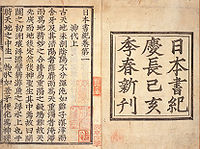 日本書紀
慶長己亥
季春新刊
日本書紀卷第一
神代上
古天地未剖陰陽不分渾沌如鷄子溟涬
而含牙及其清陽者薄靡而爲天重濁者淹滯
而爲地精妙之合搏易重濁之凝竭難故
天先成而地後定然後神聖生其中焉故曰開闢
之初洲壤浮漂譬猶游魚之浮水上也于
時天地之中生一物狀如葦牙便化爲神